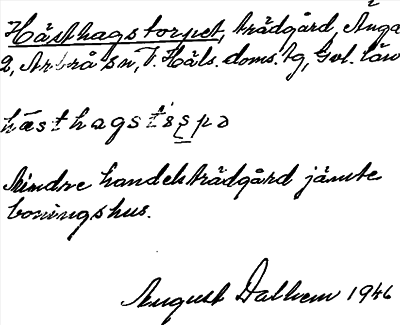 Hästhagstorpet, trädgård, Änga
2, Arbrå sn, V. Häls. doms. tg, Gvl. län
hæsthagstⁱsʂpə
Mindre handelsträdgård jämte
boningshus.
August Dalhem 1946